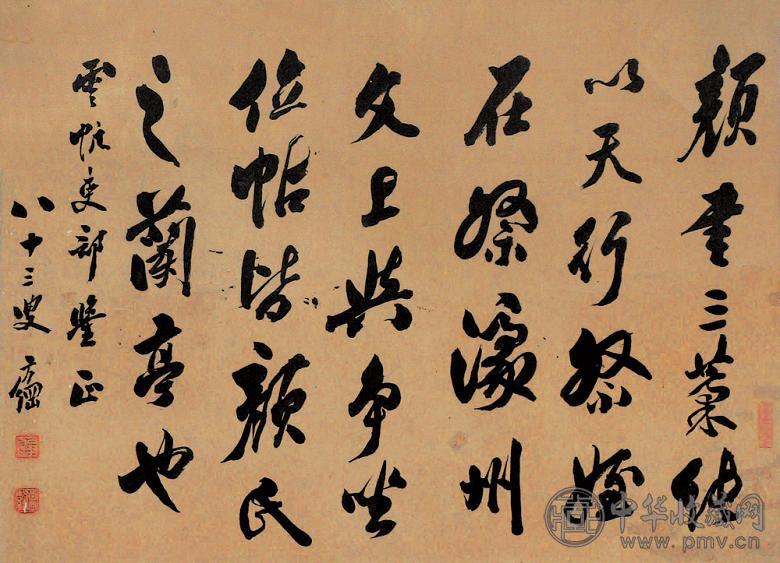 颜书三藁绝
以天行祭姪
在祭濠州
文上与争坐
位帖皆颜氏
之蘭亭也
雲帷吏部鑒正
八十三叟方綱
中华收藏网
www.pmv.cn